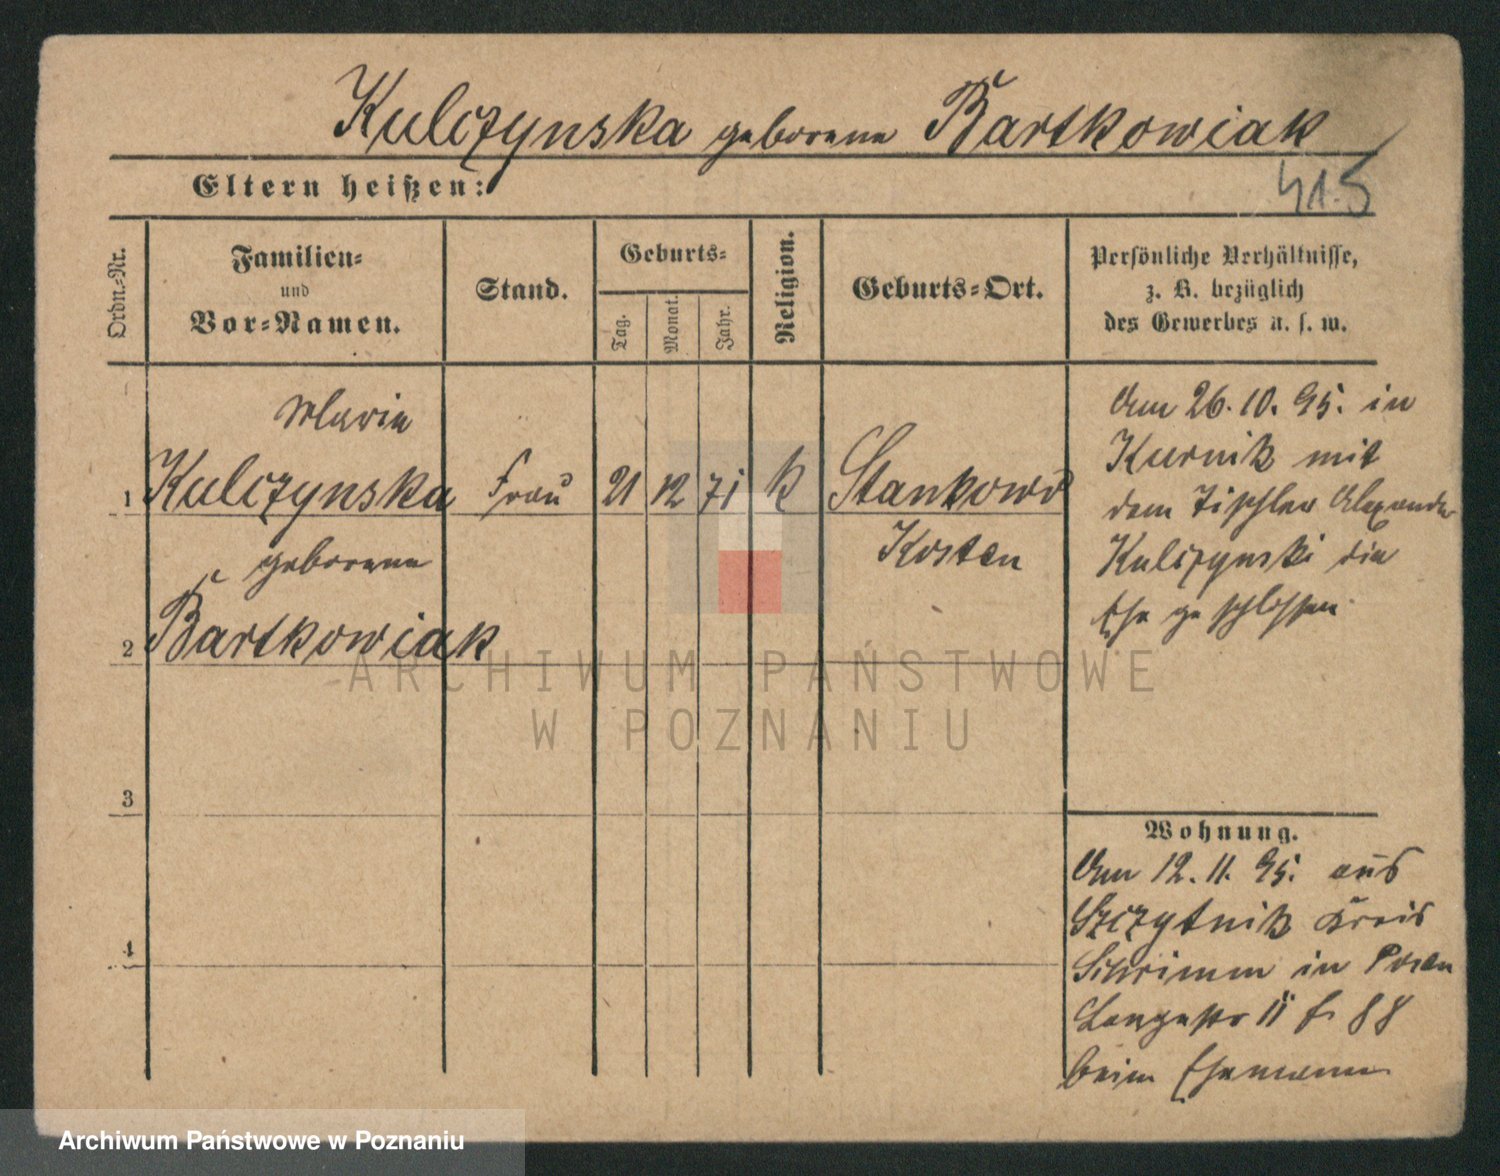 Kulczynska geborene Bartkowiak
Eltern heißen:
41.5
Ordn.-Nr.
Familien-
und
Vor-Namen.
Stand.
Geburts-
Tag.
Monat.
Jahr.
Religion.
Geburts-Ort.
Persönliche Verhältnisse,
z. B. bezüglich
des Gewerbes u. s. w.
Marie
1 Kulczynska Frau 21 12 71 k Stankowo
Kosten
geborene
2 Bartkowiak
3
4
Am 26.10.95. in
Kurnik mit
dem Tischler Alexander
Kulczynski die
Ehe geschlossen
Wohnung.
Am 12.11.95. aus
Szczytnik Kreis
Schrimm in Posen
Langestr 11 f. 88
beim Ehemann
ARCHIWUM PAŃSTWOWE
W POZNANIU
Archiwum Państwowe w Poznaniu